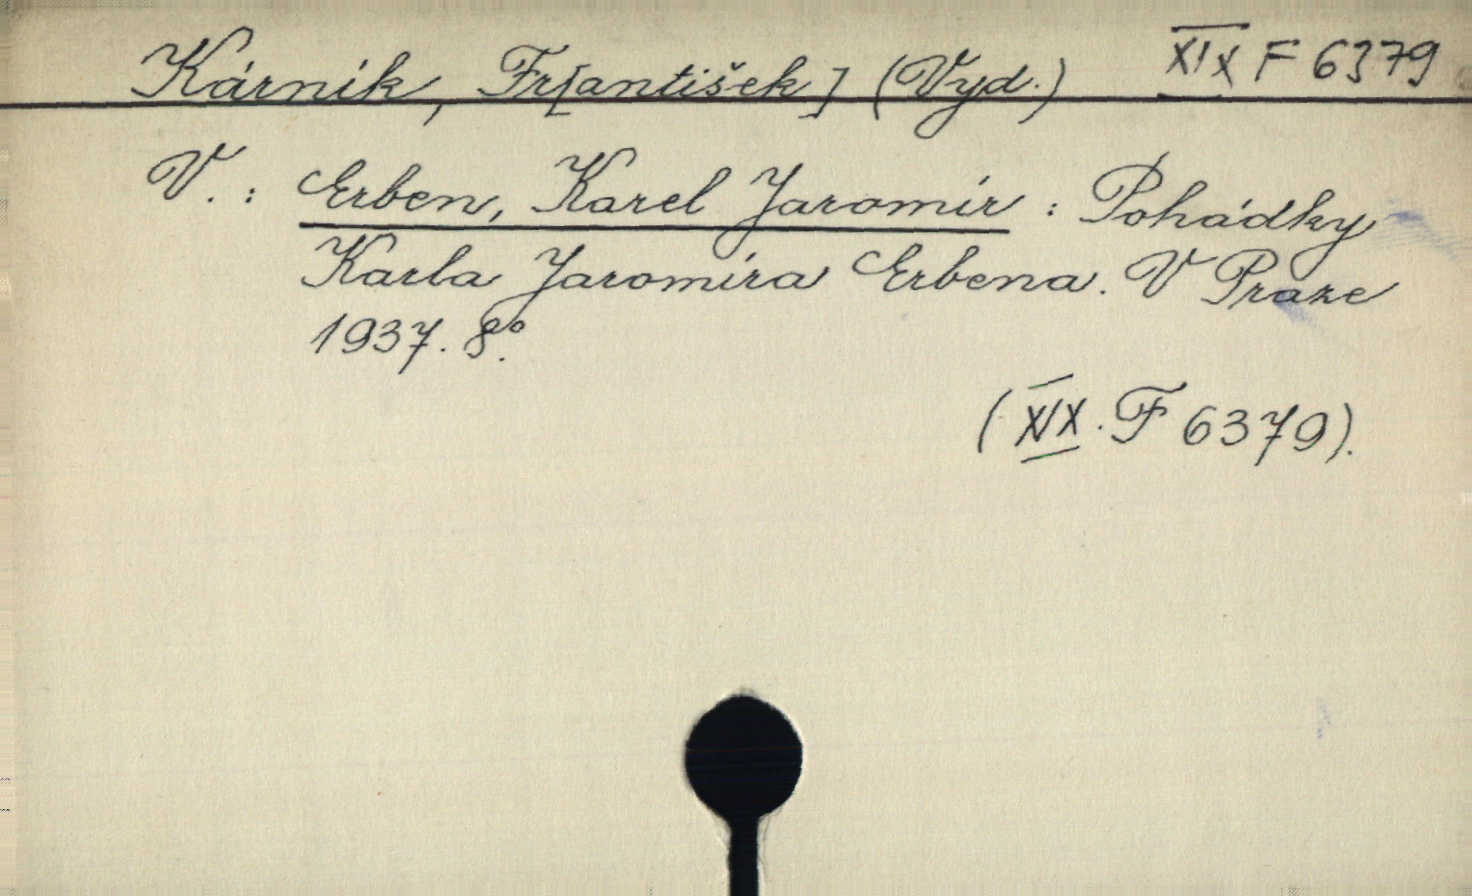 Kárník, Fr[antišek] (Vyd.) XIX F 6379
V.: Erben, Karel Jaromír: Pohádky
Karla Jaromíra Erbena. V Praze
1937. 8°.
(XIX. F 6379).